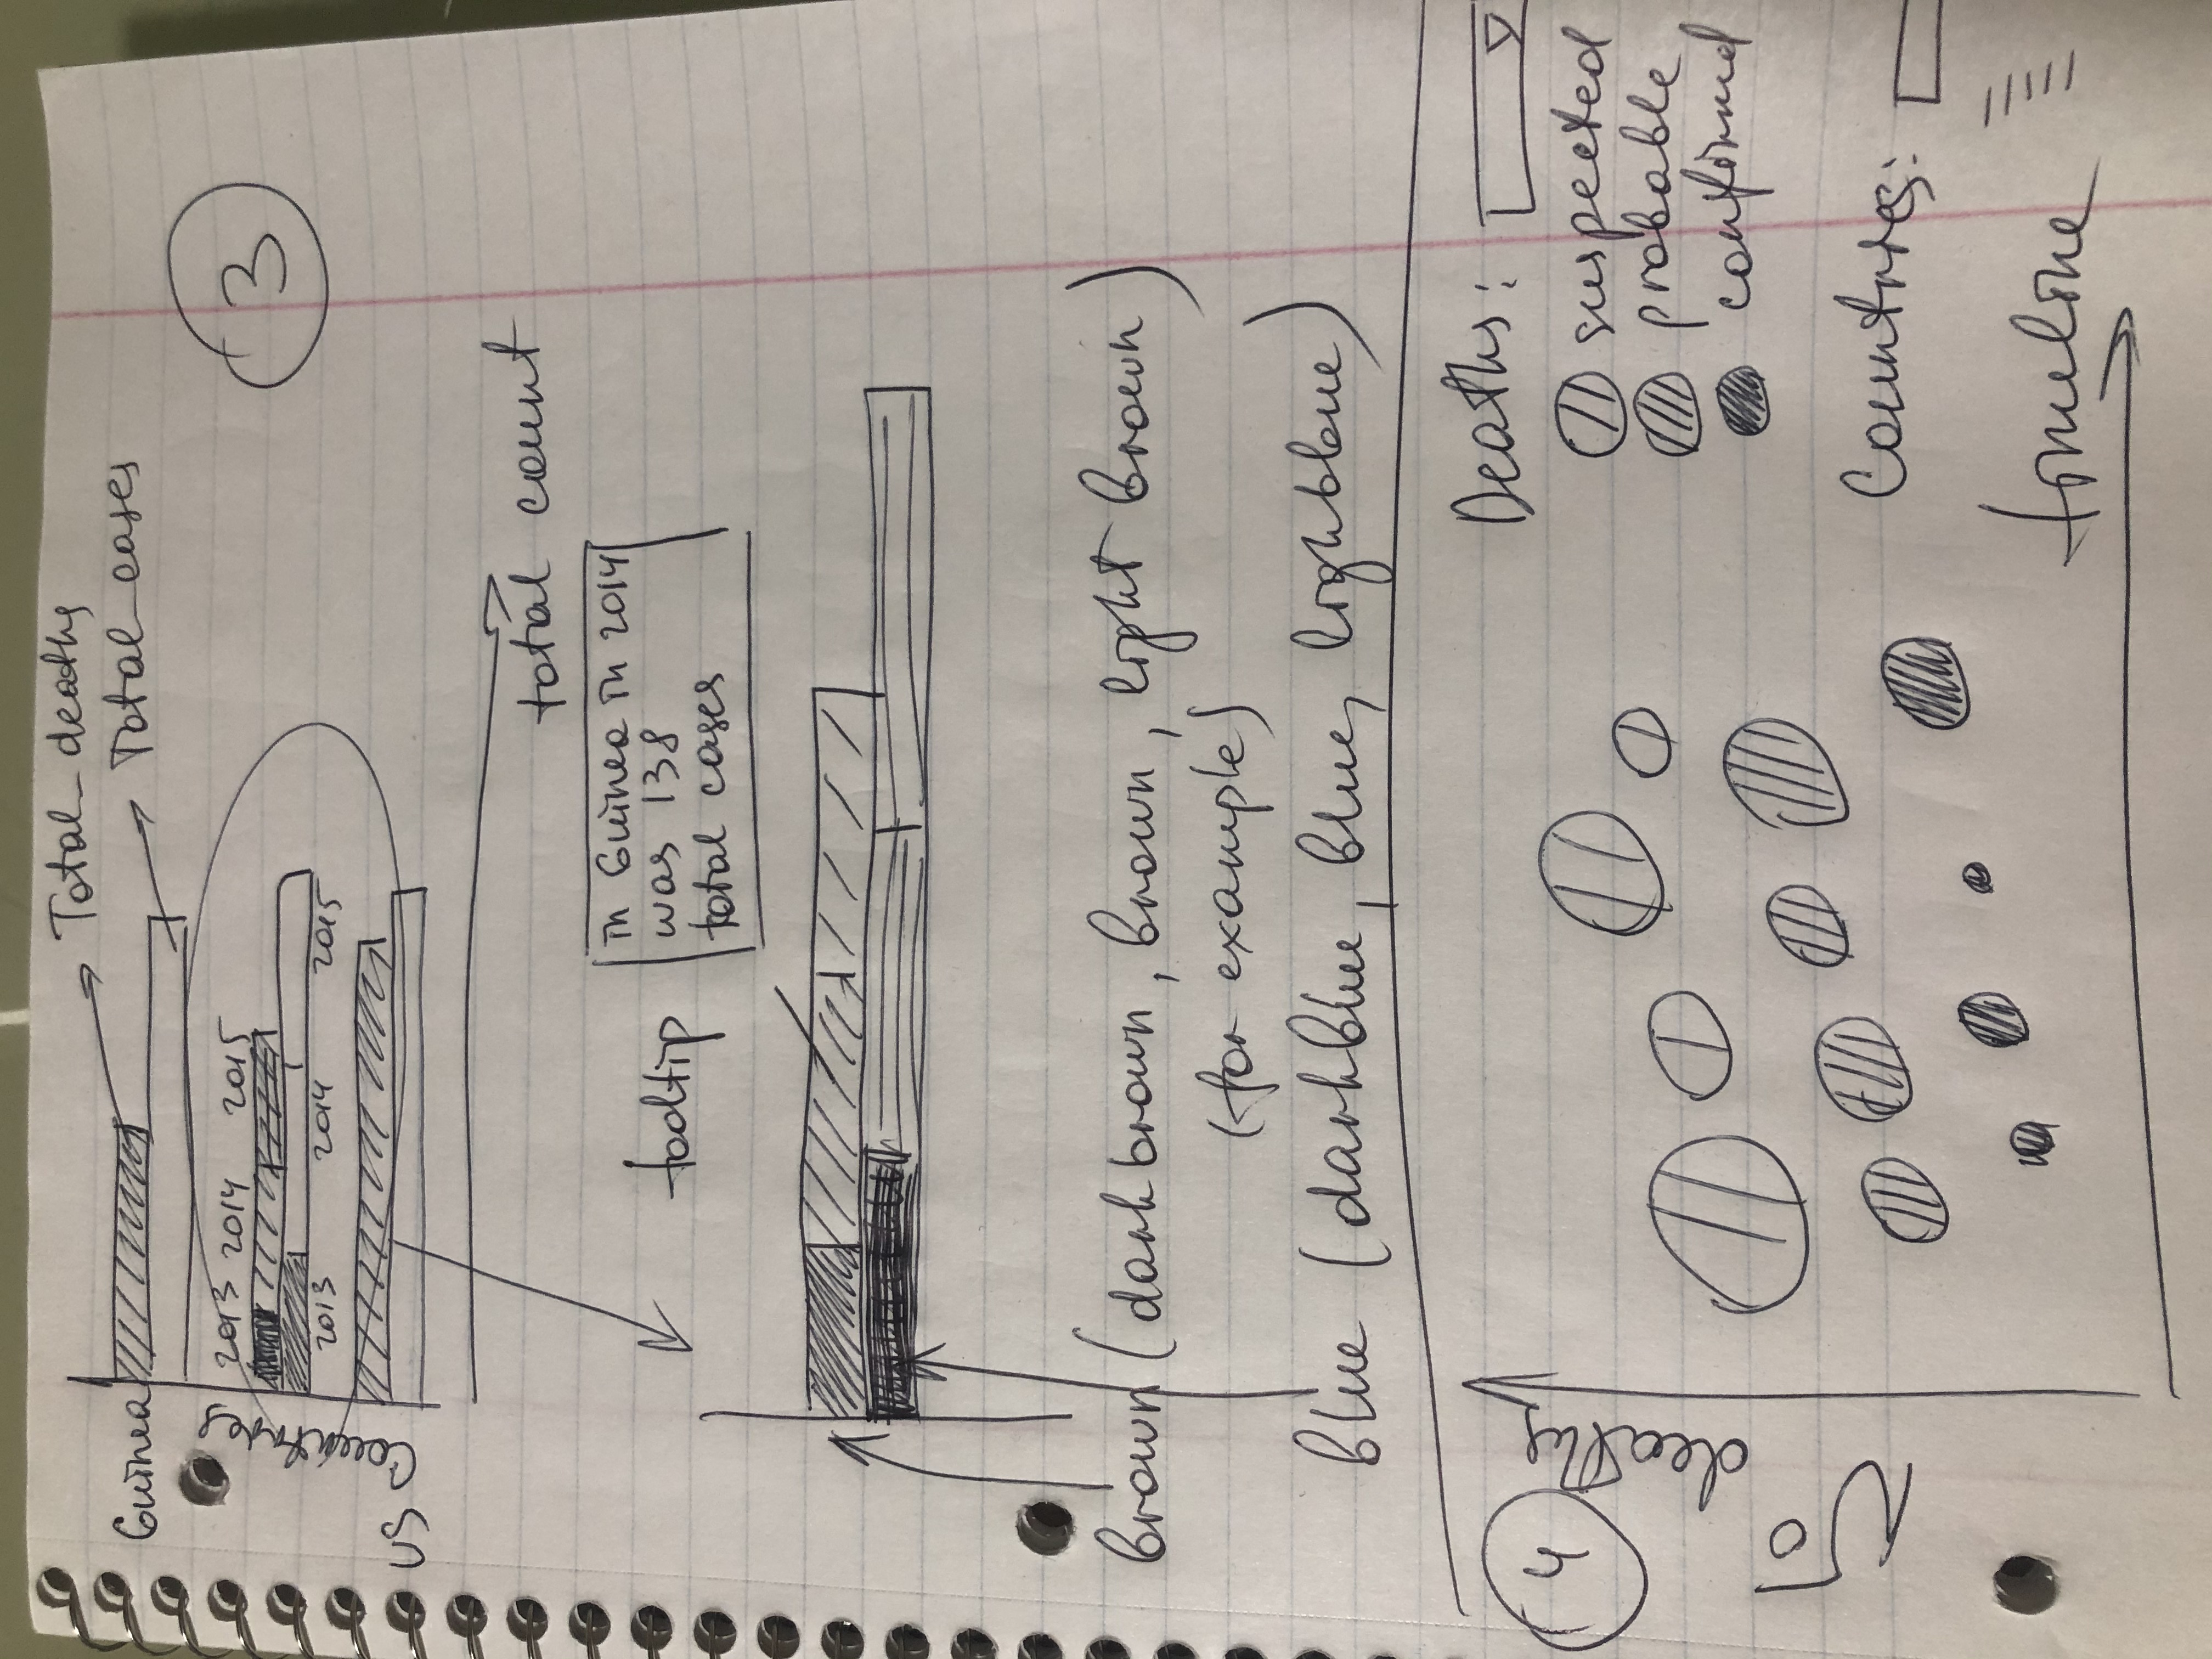 Total_deaths
Guinea
Total_cases
3
Countries
2013 2014 2015
2013 2014 2015
US
total count
tooltip
in Guinea in 2014
was 138
total cases
brown (darkbrown, brown, light brown)
(for example)
blue (darkblue, blue, lightblue)
4
No deaths
Deaths:
suspected
probable
confirmed
Countries:
timeline